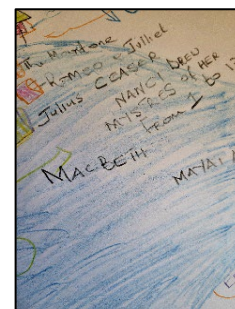 The Martone
Romeo & Julliet
Julius CEASER
NANCY DREW
MYSTRES OF HER
FROM 1 to 13
MACBETH
MAYAI